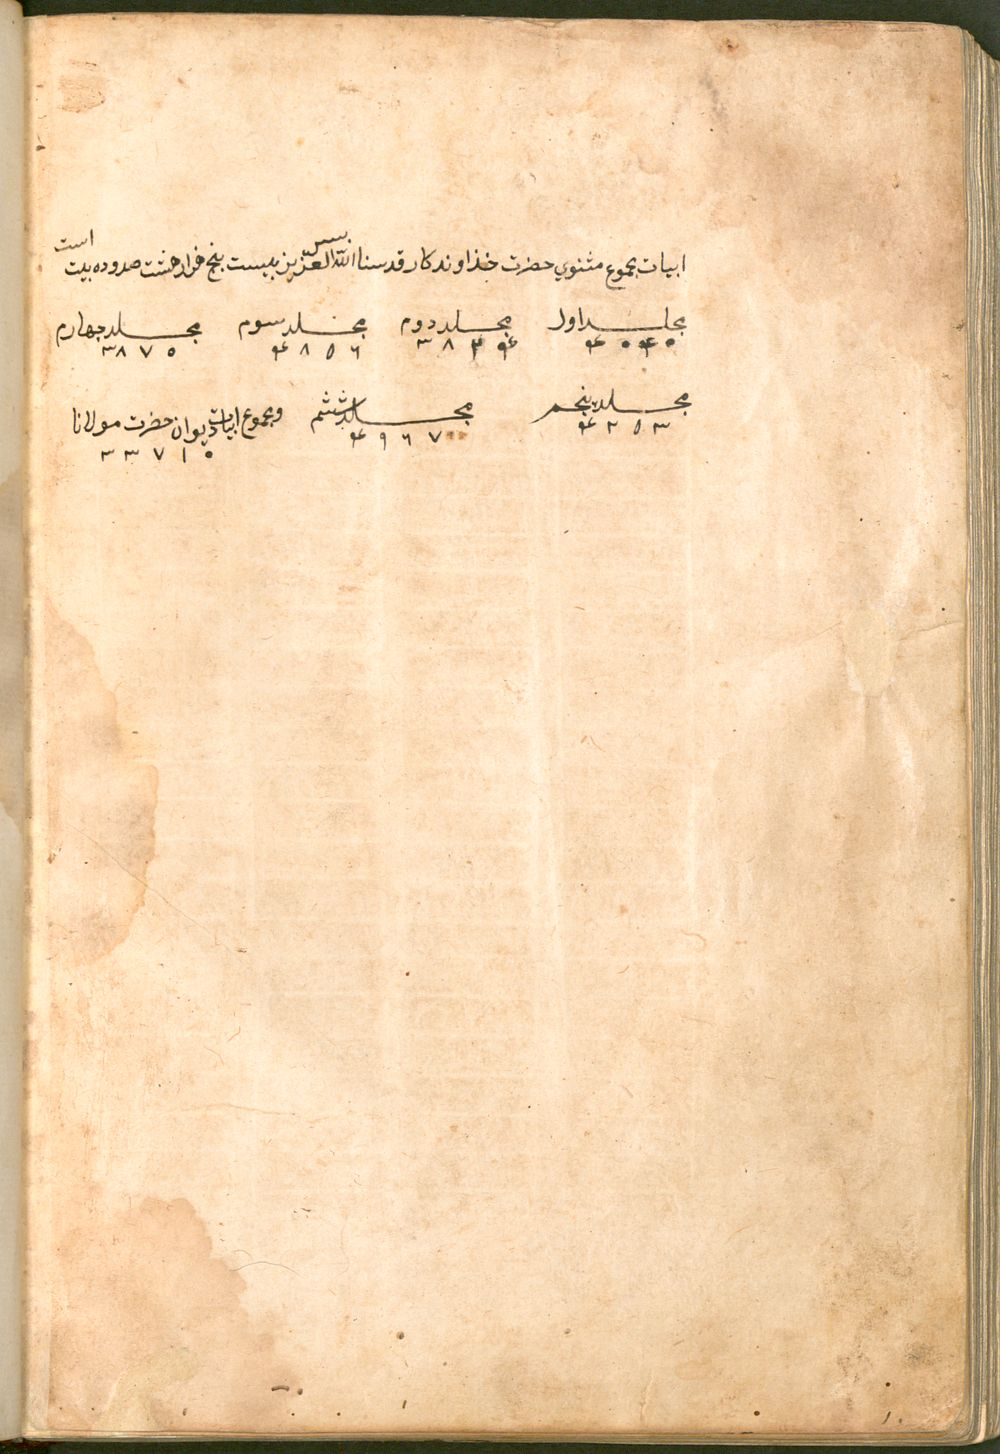 ابیات مجموع مثنوي حضرت خذاوندکار قدسنا الله بسره العزیز بیست پنج هزار هشت صدوده بیت است
مجلد اول مجلد دوم مجلد سوم مجلد چهارم
۴۰۴۰ ۴۸۵۶ ۳۸۷۵
مجلد پنجم مجلد ششم ومجموع ابیات دیوان حضرت مولانا
۴۲۵۳ ۴۹۶۷ ۳۳۷۱۰